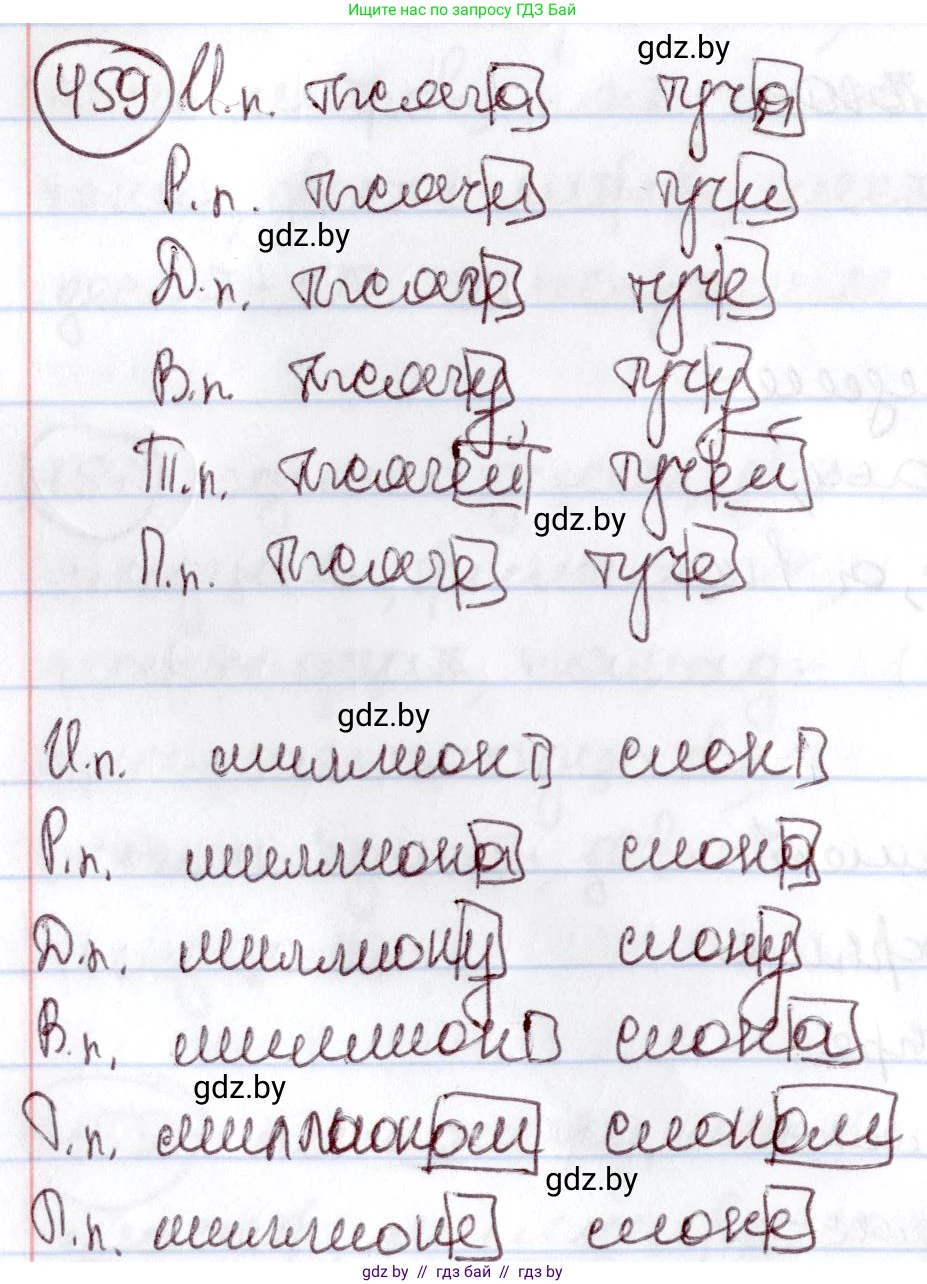 Ищите нас по запросу ГДЗ Бай
gdz.by
459 И.п. тысяча туча
Р.п. тысячи тучи
gdz.by
Д.п. тысяче туче
В.п. тысячу тучу
Т.п. тысячей тучей
gdz.by
П.п. тысяче туче
gdz.by
И.п. миллион слон
Р.п. миллиона слона
Д.п. миллиону слону
В.п. миллион слона
gdz.by
Т.п. миллионом слоном
gdz.by
П.п. миллионе слоне
gdz.by // гдз бай // гдз by